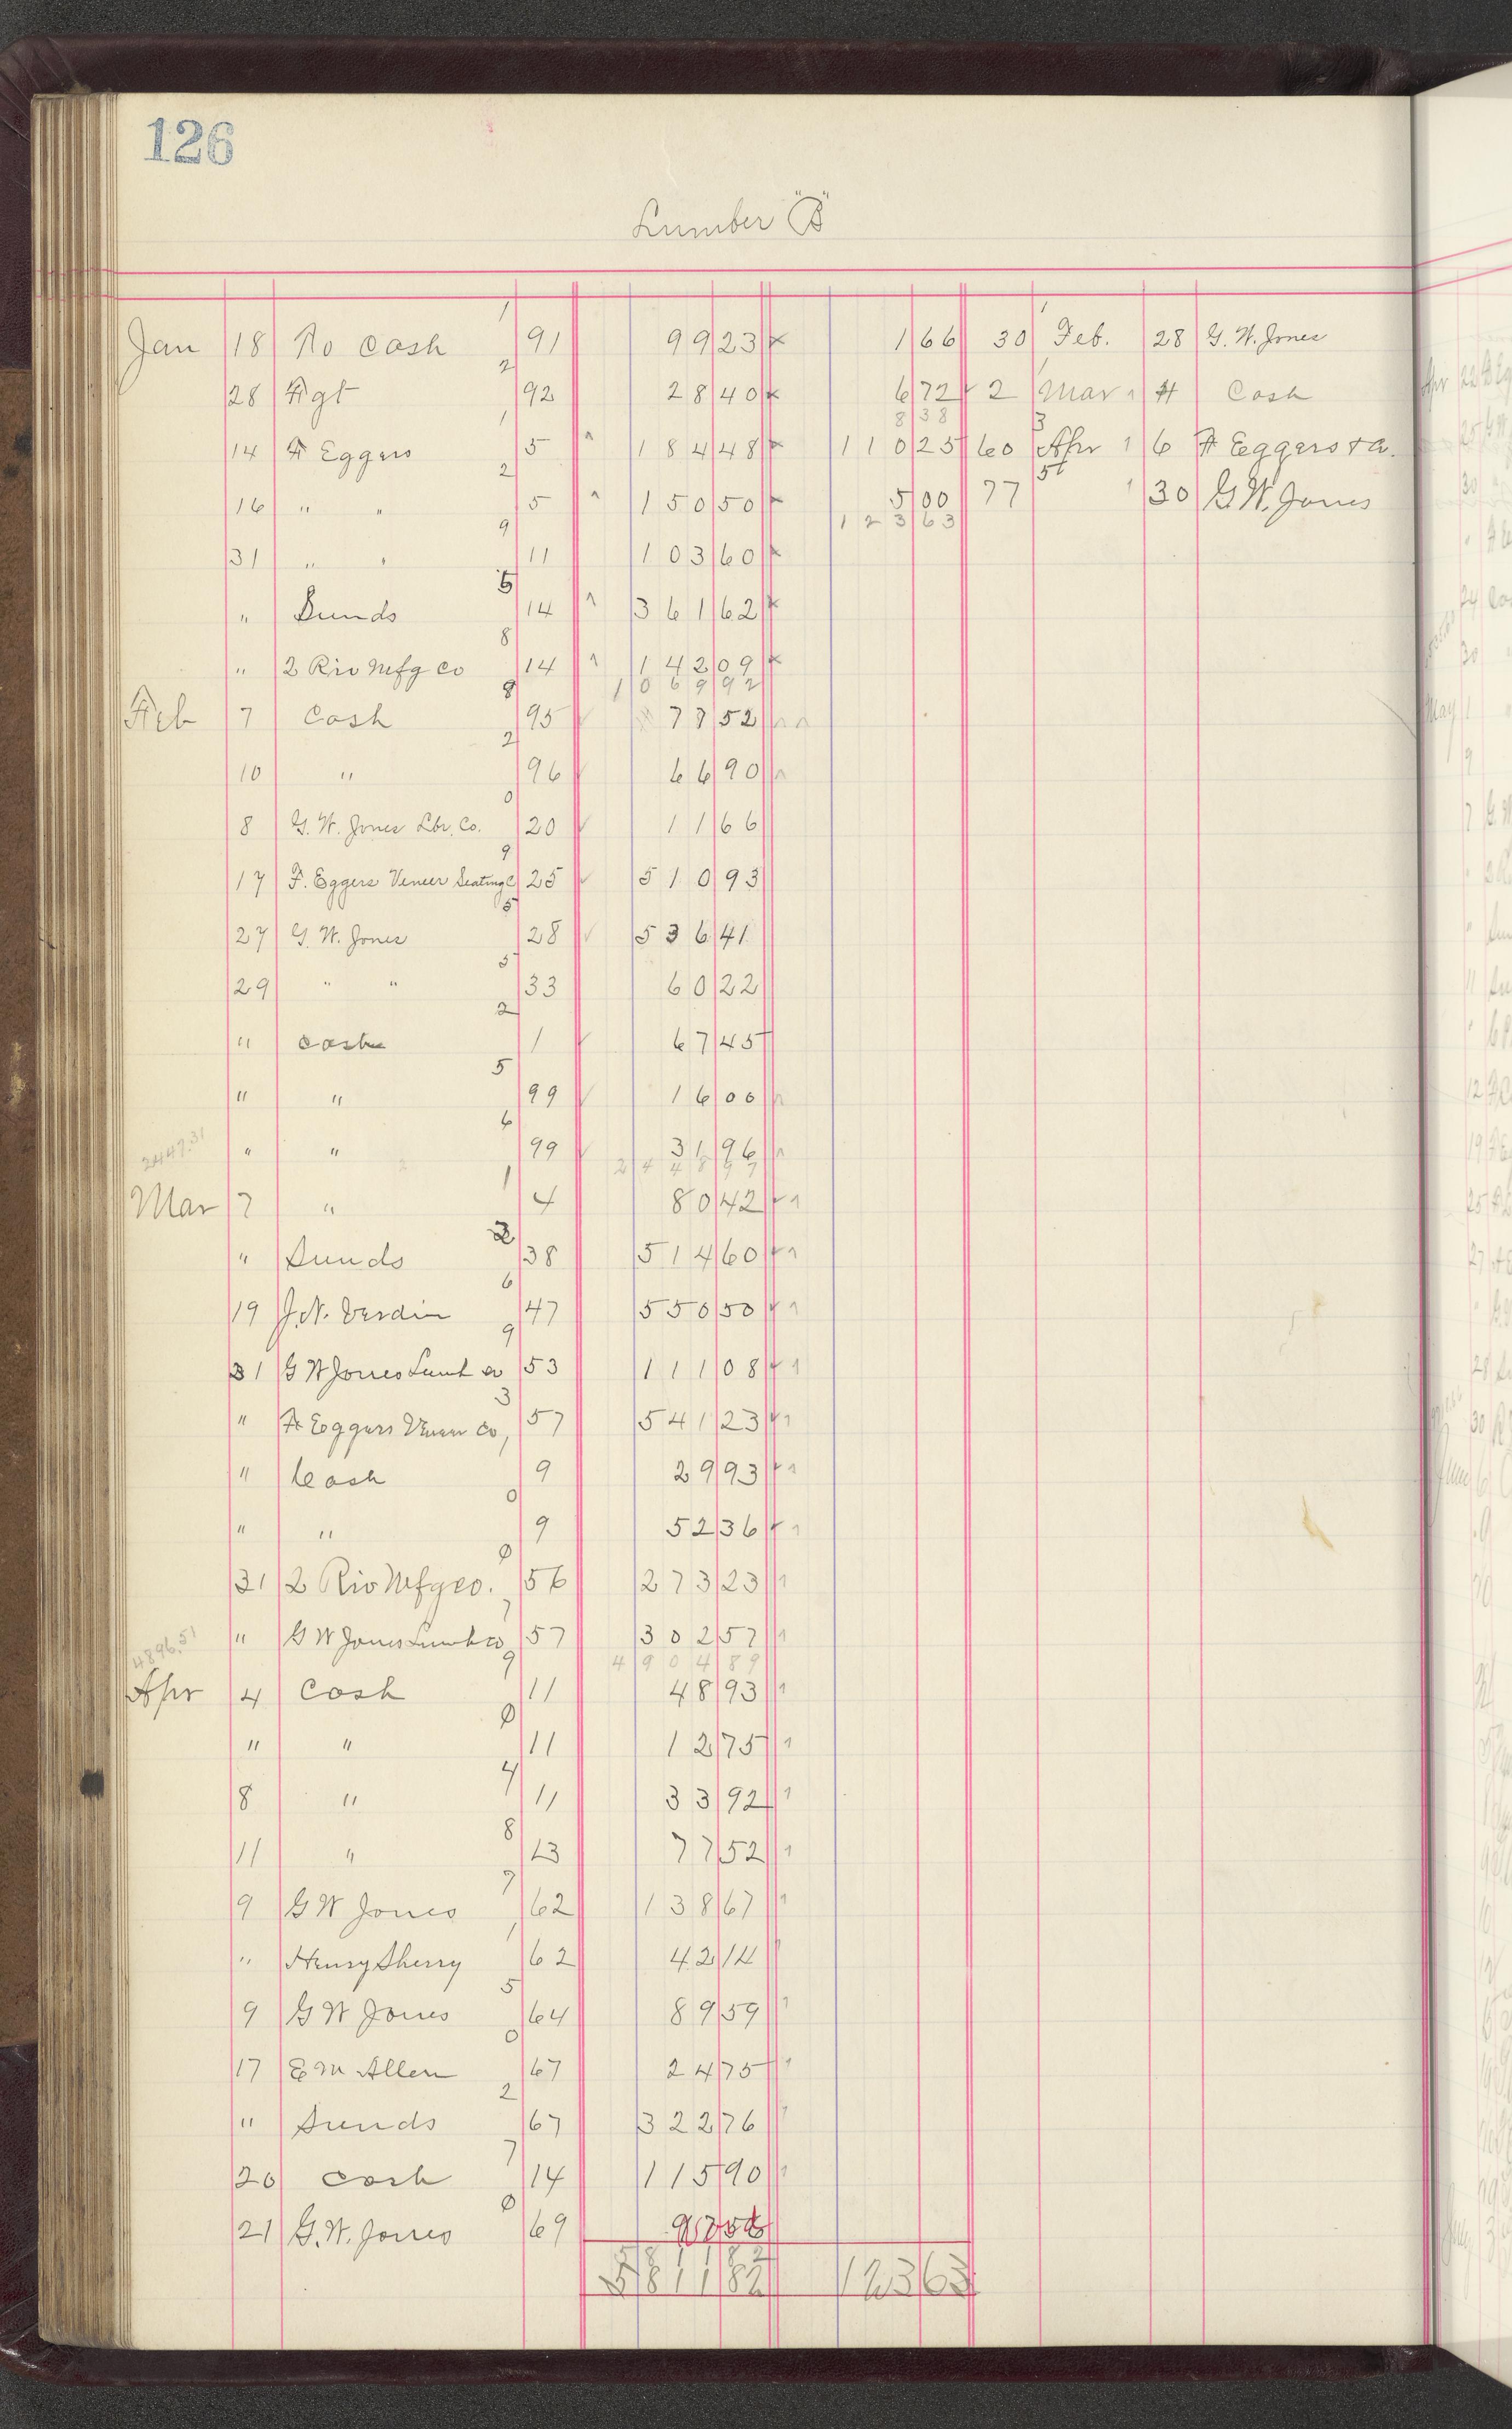 126
Lumber "B"
Jan 18 No Cash 91 99 23 1 66 30 Feb. 28 G. W. Jones
28 Agt 92 28 40 6 72 2 Mar 4 Cash
8 38
14 F Eggers 5 184 48 110 25 60 Apr 6 F Eggers + Co.
16 " " 5 150 50 5 00 77 30 G W. Jones
123 63
31 " " 11 103 60
" Sunds 14 361 62
" 2 Riv Mfg Co 14 142 09
1069 92
Feb 7 Cash 95 77 52
10 " 96 66 90
8 G. W. Jones Lbr. Co. 20 11 66
17 F. Eggers Veneer Seating C 25 510 93
27 G. W. Jones 28 536 41
29 " " 33 60 22
" Cash 1 67 45
" " 99 16 00
2447.31 " " 99 31 96
2448 97
Mar 7 " 4 80 42
" Sunds 38 514 60
19 J. N. Verdin 47 550 50
31 G W Jones Lumb Co 53 111 08
" F Eggers Veneer Co, 57 541 23
" Cash 9 29 93
" " 9 52 36
31 2 Riv Mfg Co. 56 273 23
" G W Jones Lumb Co 57 302 57
4896.51 4904 89
Apr 4 Cash 11 48 93
" " 11 12 75
8 " 11 33 92
11 " 13 77 52
9 G W Jones 62 138 67
" Henry Sherry 62 42 14
9 G W Jones 64 89 59
17 E M Allen 67 24 75
" Sunds 67 322 76
20 Cash 14 115 90
21 G. W. Jones 69
5811 82 123 63